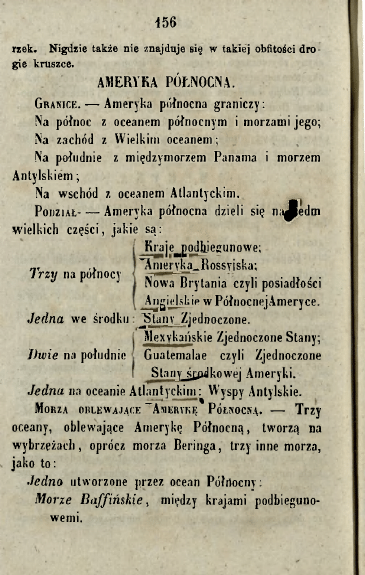 156
rzek. Nigdzie także nie znajduje się w takiej obfitości dro-
gie kruszce.
AMERYKA PÓŁNOCNA.
GRANICE. — Ameryka północna graniczy:
Na północ z oceanem północnym i morzami jego;
Na zachód z Wielkim oceanem;
Na południe z międzymorzem Panama i morzem
Antylskiem;
Na wschód z oceanem Atlantyckim.
PODZIAŁ- — Ameryka północna dzieli się na siedm
wielkich części, jakie są:
Trzy na północy
Kraje podbiegunowe;
Ameryka Rossyjska;
Nowa Brytania czyli posiadłości
Angielskie w Północnej Ameryce.
Jedna we środku: Stany Zjednoczone.
Dwie na południe
Mexykańskie Zjednoczone Stany;
Guatemalae czyli Zjednoczone
Stany środkowej Ameryki.
Jedna na oceanie Atlantyckim: Wyspy Antylskie.
MORZA OBLEWAJĄCE AMERYKĘ PÓŁNOCNĄ. — Trzy
oceany, oblewające Amerykę Północną, tworzą na
wybrzeżach, oprócz morza Beringa, trzy inne morza,
jako to:
Jedno utworzone przez ocean Północny:
Morze Baffińskie, między krajami podbieguno-
wemi.